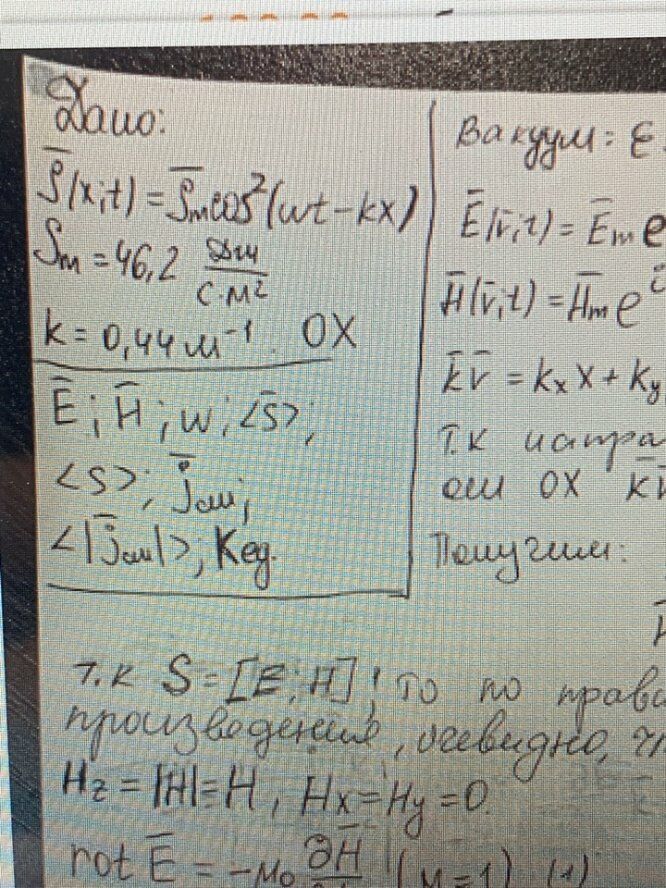 Дано:
S̄(x,t) = S̄m cos²(wt - kx)
Sm = 46,2 Дж/с·м²
k = 0,44 м⁻¹. OX
Ē; H̄; w; <S̄>;
<S>; j̄см;
<|j̄см|>; Kед.
Вакуум: ε
Ē(r̄,t) = Ēm e
H̄(r̄,t) = H̄m e
k̄r̄ = kx x + ky
Т.к напра
оси OX k̄
Получим:
т.к S = [E; H], то по прав
произведения, очевидно,
Hz = |H| = H, Hx = Hy = 0.
rot Ē = -μ₀ ∂H̄ (μ=1) (1)